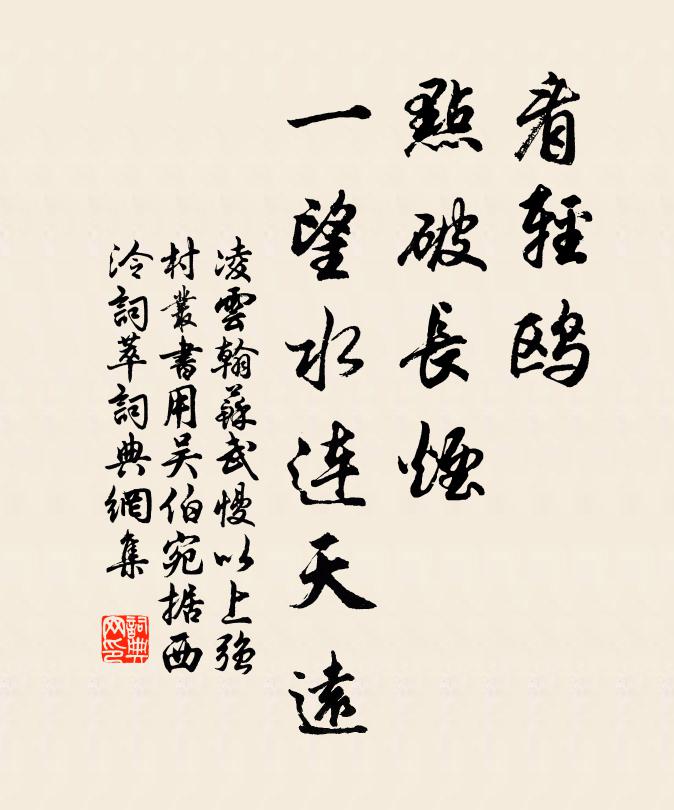 看輕鷗
點破長煙
一望水連天遠
凌雲翰蘇武慢以上彊
村叢書用吳伯宛据西
泠詞萃詞典網集
詞典
网印